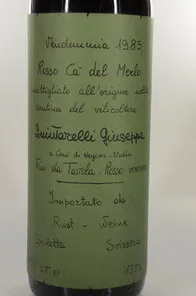 Vendemmia 1985
Rosso Ca' del Merlo
imbottigliato all'origine nella
cantina del viticoltore
Quintarelli Giuseppe
a Cerè di Negrar - Italia
Vino da Tavola - Rosso veronese
Importato da:
Rust - Weine
Svizzera